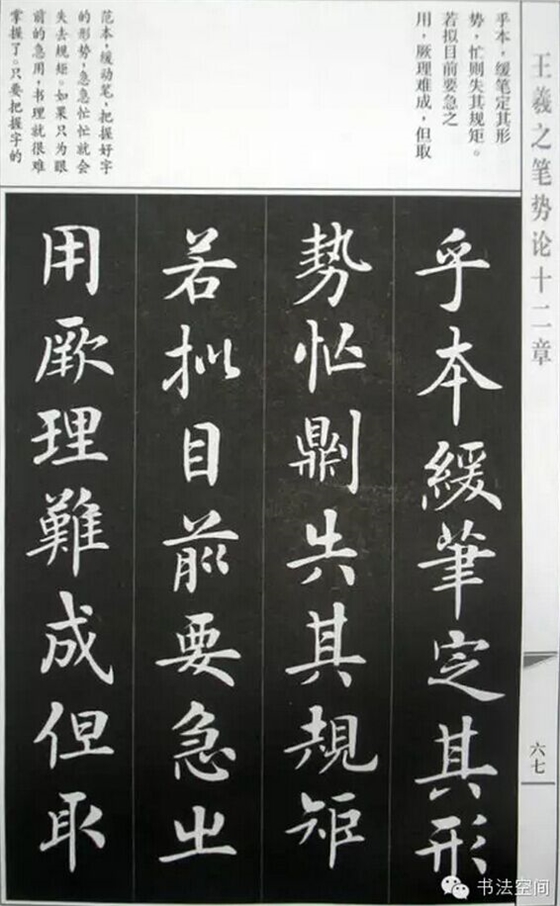 王羲之笔势论十二章
六七
乎本，缓笔定其形
势，忙则失其规矩。
若拟目前要急之
用，厥理难成，但取
范本，缓动笔，把握好字
的形势，急急忙忙就会
失去规矩。如果只为眼
前的急用，书理就很难
掌握了。只要把握字的
乎本緩筆定其形
勢忙鼎刂失其規矩
若拟目前要急之
用厥理難成但取
书法空间